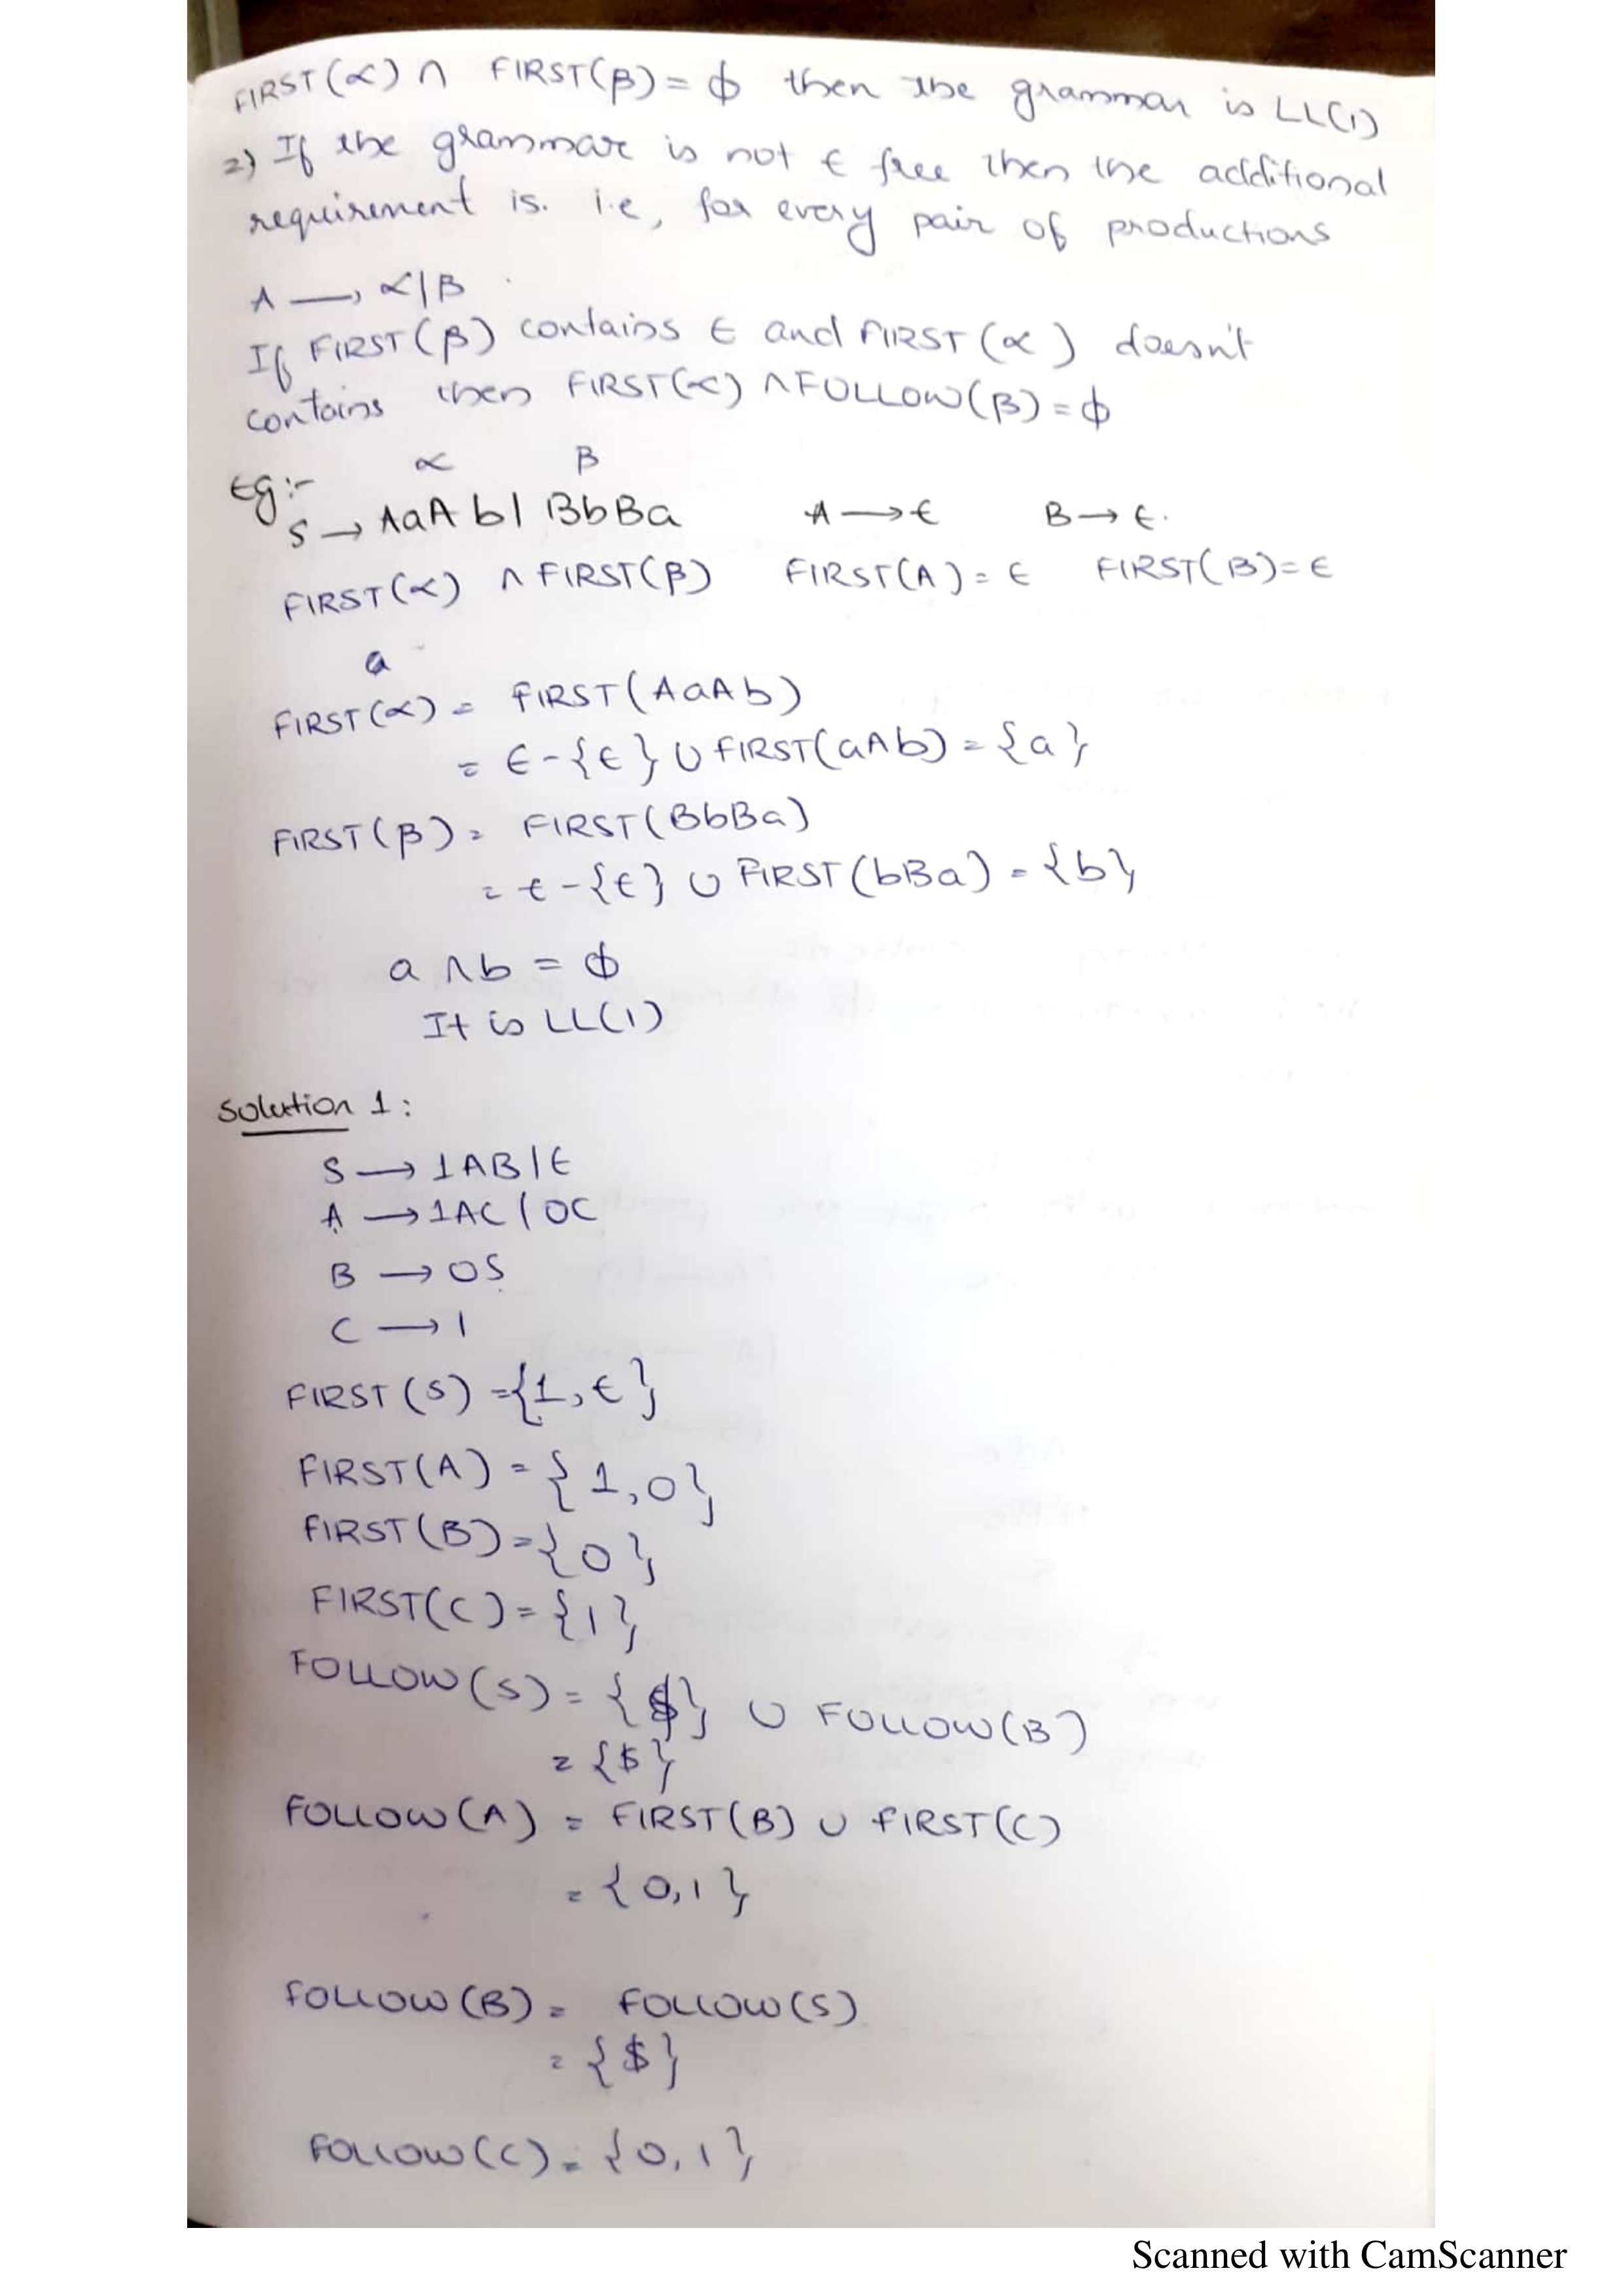 FIRST(∝) ∩ FIRST(β) = ϕ then the grammar is LL(1)
2) If the grammar is not ϵ free then the additional
requirement is. i.e, for every pair of productions
A → ∝|β
If FIRST(β) contains ϵ and FIRST(∝) doesn't
contains then FIRST(∝) ∩ FOLLOW(β) = ϕ
∝ β
Eg:-
S → AaAb| BbBa A → ϵ B → ϵ.
FIRST(∝) ∩ FIRST(β) FIRST(A) = ϵ FIRST(B) = ϵ
a
FIRST(∝) = FIRST(AaAb)
= ϵ - {ϵ} ∪ FIRST(aAb) = {a}
FIRST(β) = FIRST(BbBa)
= ϵ - {ϵ} ∪ FIRST(bBa) = {b}
a ∩ b = ϕ
It is LL(1)
Solution 1:
S → 1AB|ϵ
A → 1AC|0C
B → 0S
C → 1
FIRST(S) = {1, ϵ}
FIRST(A) = {1,0}
FIRST(B) = {0}
FIRST(C) = {1}
FOLLOW(S) = {$} ∪ FOLLOW(B)
= {$}
FOLLOW(A) = FIRST(B) ∪ FIRST(C)
= {0,1}
FOLLOW(B) = FOLLOW(S)
= {$}
FOLLOW(C) = {0,1}
Scanned with CamScanner